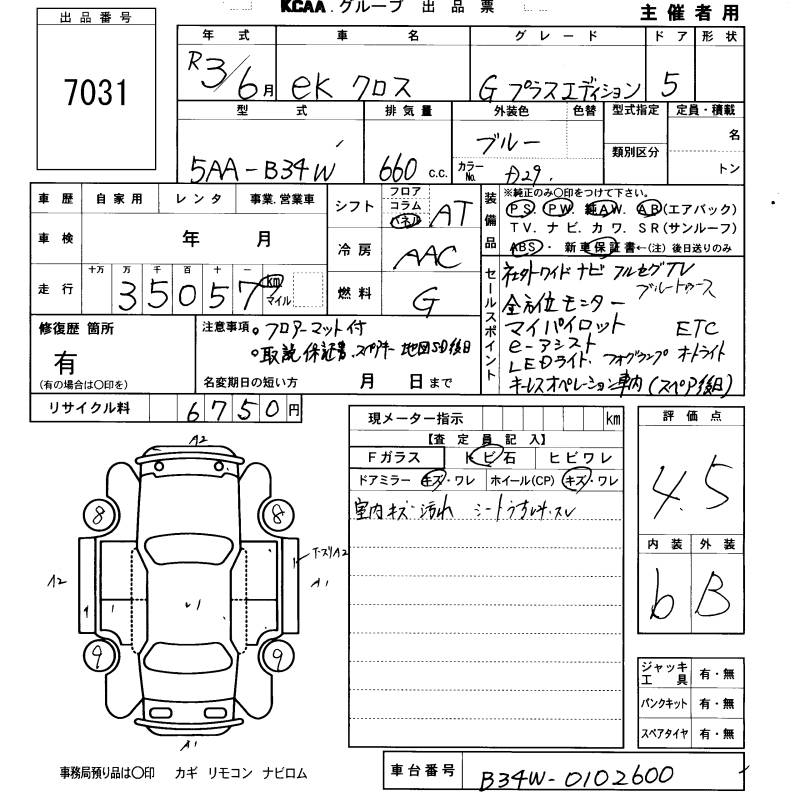 KCAA.グループ 出品票
主催者用
出品番号
7031
年式 車名 グレード ドア 形状
R3/6月 eK クロス G プラスエディション 5
型式 排気量 外装色 色替 型式指定 定員・積載
5AA-B34W 660 c.c. ブルー 類別区分 名
カラーNo. D29. トン
車歴 自家用 レンタ 事業.営業車
車検 年 月
走行 十万 万 千 百 十 一
35057 km マイル
シフト フロア コラム パネル AT
冷房 AAC
燃料 G
装備品
※純正のみ〇印をつけて下さい。
PS. PW. 純AW. AB(エアバック)
TV. ナビ. カワ. SR(サンルーフ)
ABS・ 新車保証書←(注)後日送りのみ
セールスポイント
社外ワイドナビ フルセグTV
ブルートゥース
全方位モニター
マイパイロット ETC
e-アシスト
LEDライト. フォグランプ オートライト
キーレスオペレーション車内(スペア後日)
修復歴 箇所
有
(有の場合は〇印を)
注意事項。フロアーマット付
。取説 保証書.スペアキー 地図SD後日
名変期日の短い方 月 日まで
リサイクル料 6750円
現メーター指示 km
【査定員記入】
Fガラス トビ石 ヒビワレ
ドアミラー キズ・ワレ ホイール(CP) キズ・ワレ
室内キズ・汚れ シートうすしみ・スレ
評価点
4.5
内装 外装
b B
A2
8 8
A2 A1
9 9
A1
ジャッキ工具 有・無
パンクキット 有・無
スペアタイヤ 有・無
事務局預り品は〇印 カギ リモコン ナビロム
車台番号 B34W-0102600